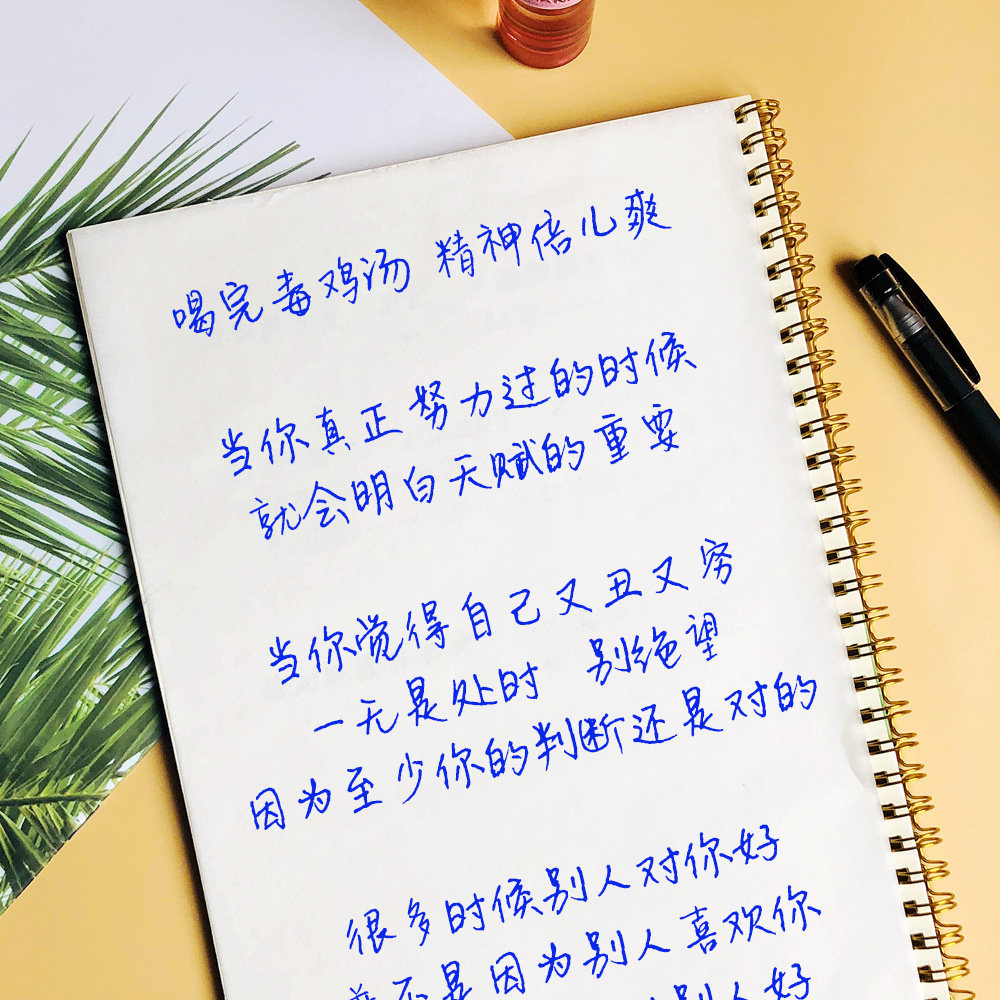 喝完毒鸡汤 精神倍儿爽
当你真正努力过的时候
就会明白天赋的重要
当你觉得自己又丑又穷
一无是处时 别绝望
因为至少你的判断还是对的
很多时候别人对你好
并不是因为别人喜欢你
别人好